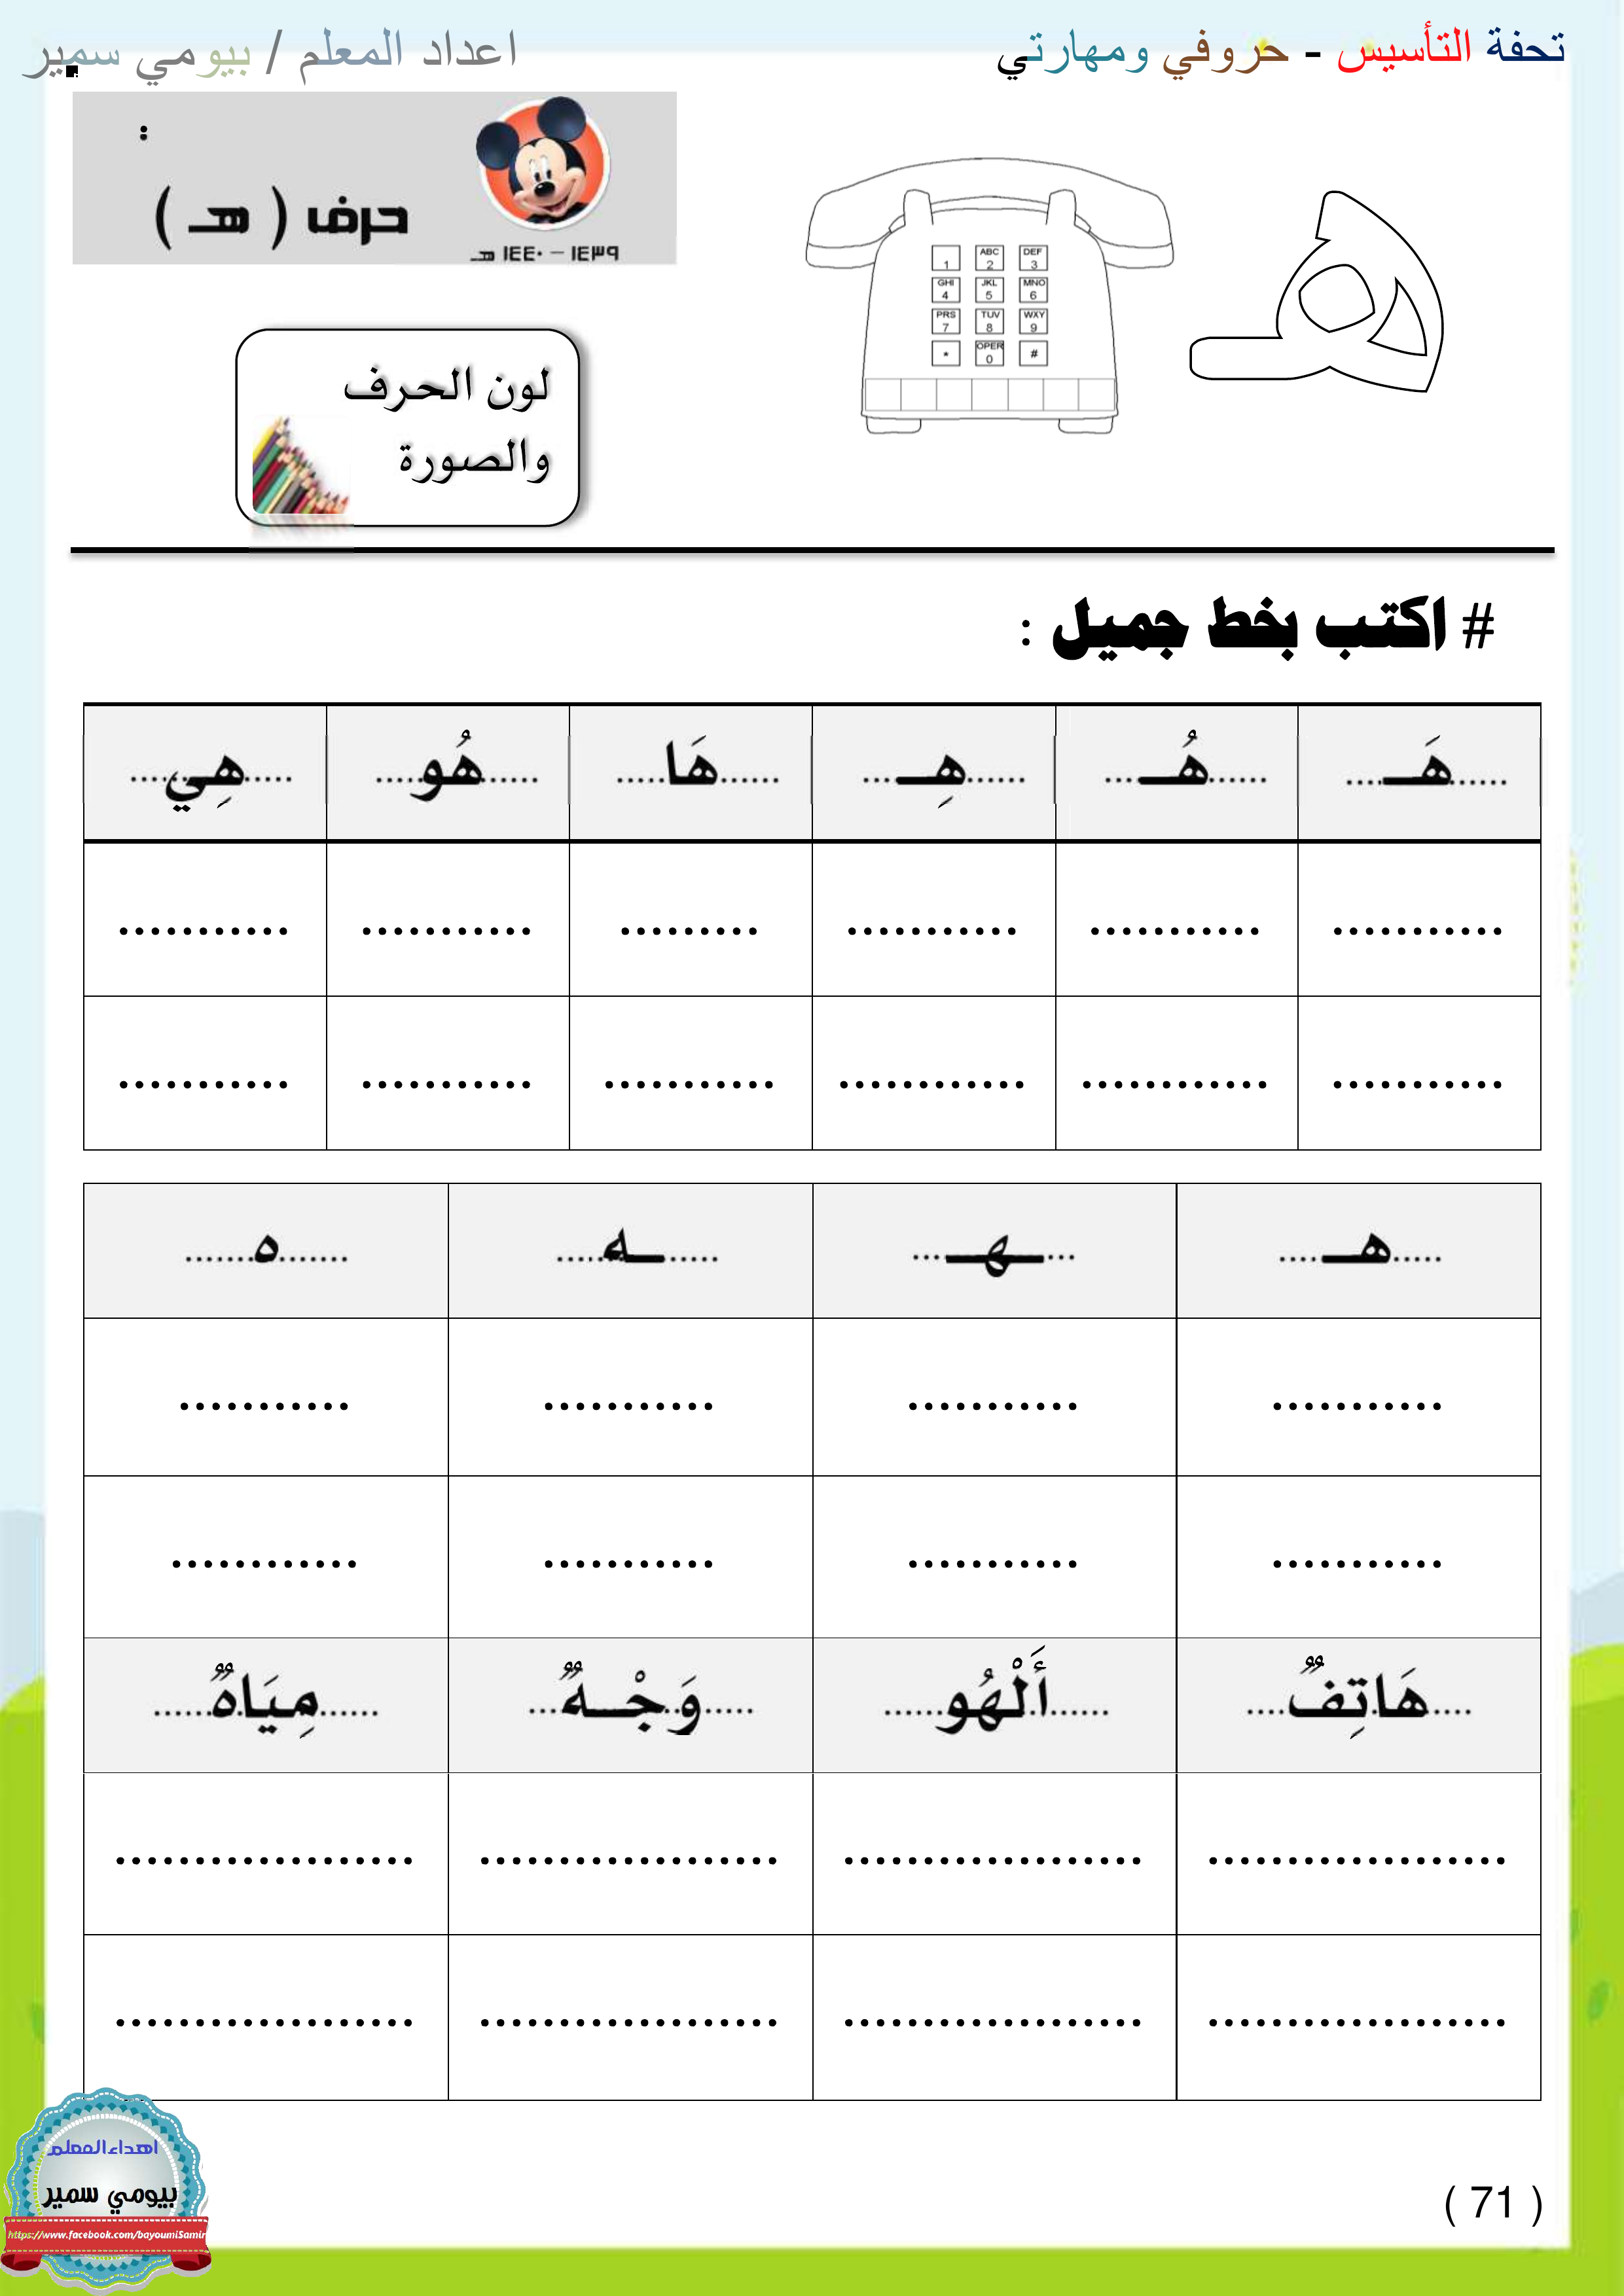 تحفة التأسيس - حروفي ومهارتي
اعداد المعلم / بيومي سمير
:
حرف ( هـ )
١٤٣٩ – ١٤٤٠ هـ
هـ
1 ABC 2 DEF 3
GHI 4 JKL 5 MNO 6
PRS 7 TUV 8 WXY 9
* OPER 0 #
لون الحرف
والصورة
# اكتب بخط جميل :
......هَـ.... ......هُـ... ......هِـ... ......هَا..... ......هُو..... .....هِي....
........... ........... ........... ......... ........... ...........
........... ............ ............ ........... ........... ...........
.....هـ.... ...ـهـ... .....ـه..... .......ه.......
........... ........... ........... ...........
........... ........... ........... ............
....هَاتِفٌ.... ......أَلْهُو...... .....وَجْـهٌ... ......مِيَاهٌ......
................... ................... ................... ...................
................... ................... ................... ...................
اهداء المعلم
بيومي سمير
https://www.facebook.com/bayoumiSamir
( 71 )